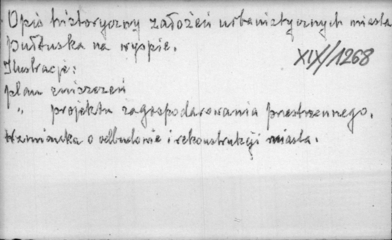 Opis historyczny założeń urbanistycznych miasta
Pułtuska na wyspie.
XIX/1268
Ilustracje:
plan zniszczeń
" projektu zagospodarowania przestrzennego.
Wzmianka o odbudowie i rekonstrukcji miasta.